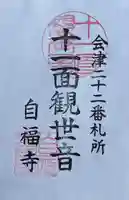 会津二十二番札所
十一面観世音
自福寺